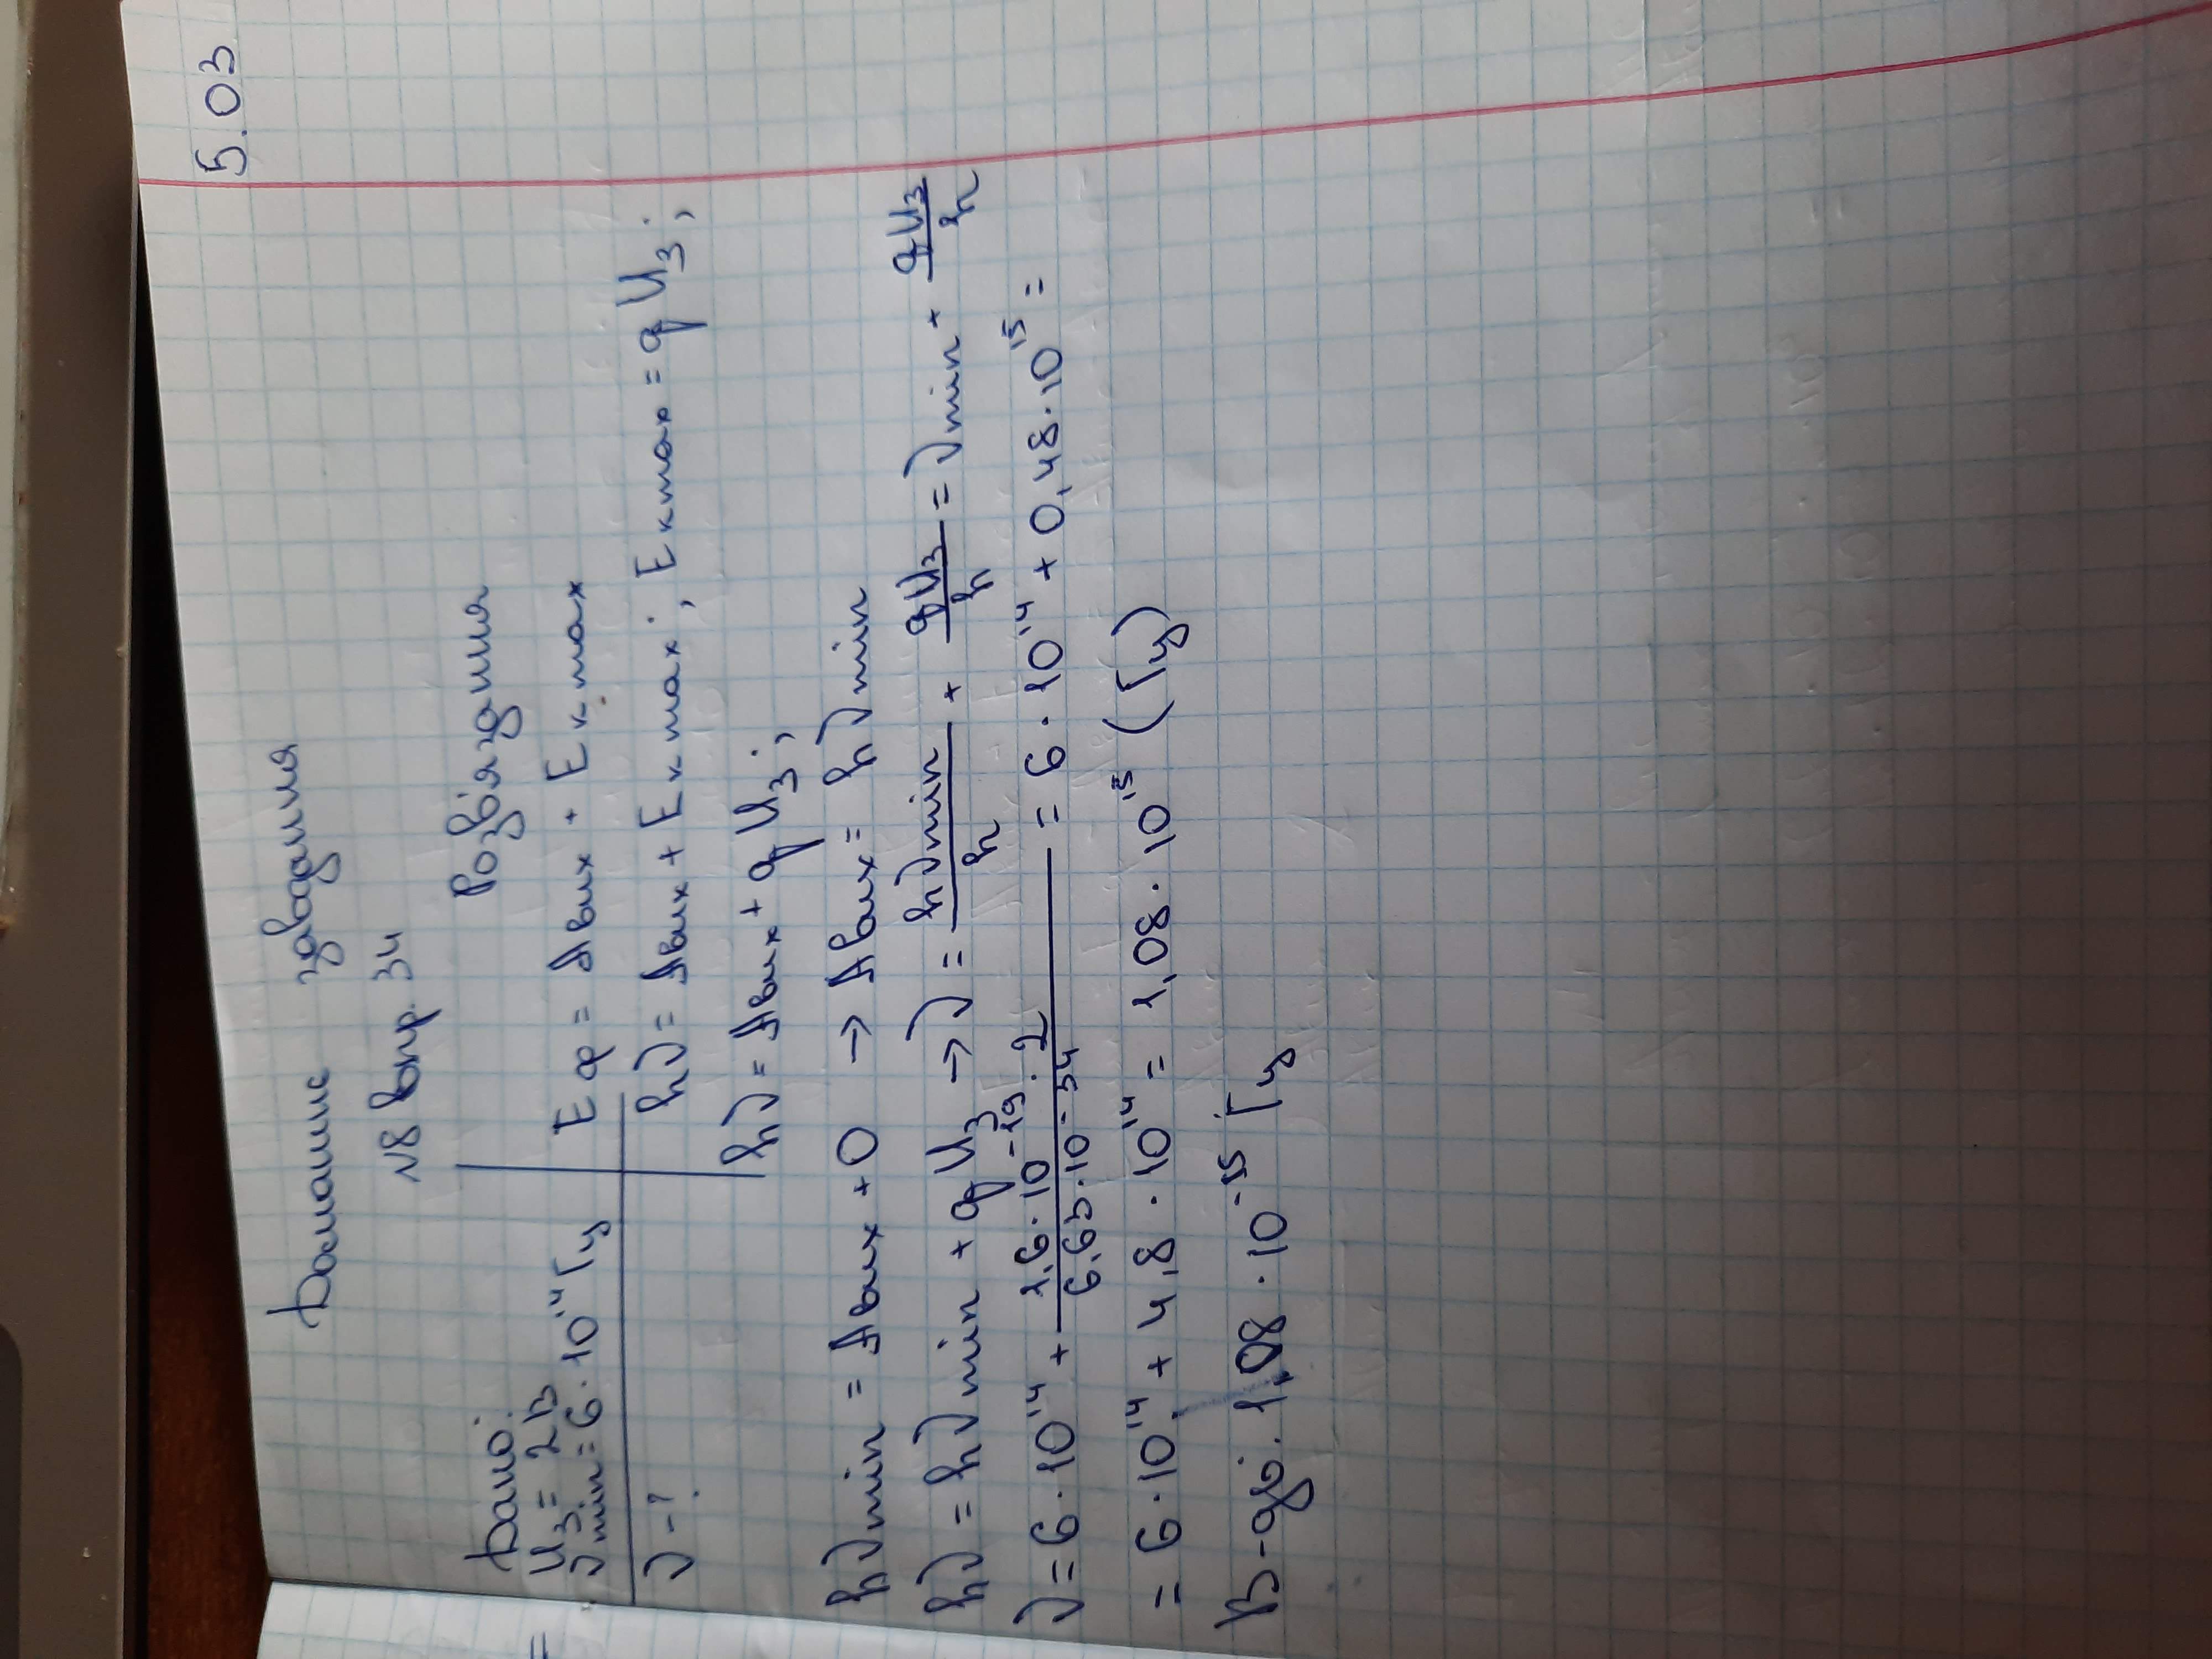 5.03
Домашнє завдання
№8 впр. 34
Дано:
Uз = 2В
νmin = 6 · 10¹⁴ Гц
ν - ?
Розв'язання
Eф = Aвих + Eк max
hν = Aвих + Eк max; Eк max = qUз;
hν = Aвих + qUз;
hνmin = Aвих + 0 → Aвих = hνmin
hν = hνmin + qUз → ν = hνmin/h + qUз/h = νmin + qUз/h
ν = 6 · 10¹⁴ + 1,6 · 10⁻¹⁹ · 2 / 6,63 · 10⁻³⁴ = 6 · 10¹⁴ + 0,48 · 10¹⁵ =
= 6 · 10¹⁴ + 4,8 · 10¹⁴ = 1,08 · 10¹⁵ (Гц)
В-дь: 1,08 · 10⁻¹⁵ Гц